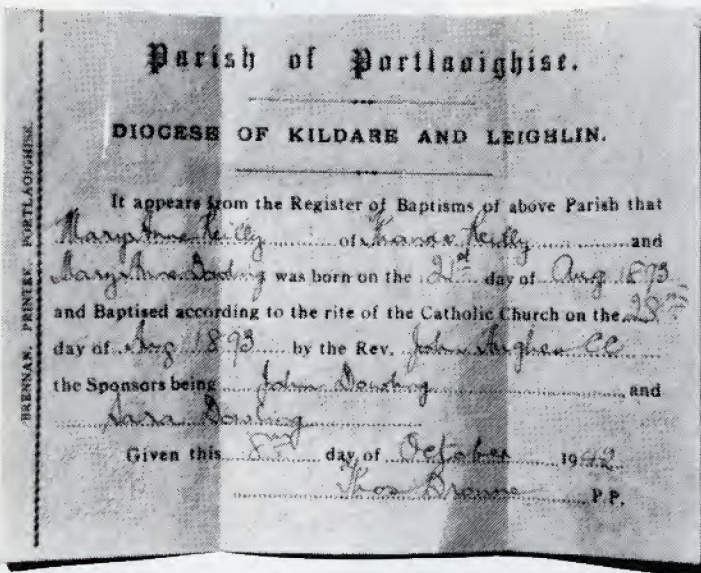 Parish of Portlaoighise.
DIOCESE OF KILDARE AND LEIGHLIN.
It appears from the Register of Baptisms of above Parish that
Mary Anne Reilly of Thomas Reilly and
Mary Anne Dowling was born on the 21st day of Aug 1893
and Baptised according to the rite of the Catholic Church on the 28th
day of Aug 1893 by the Rev. John Hughes CC
the Sponsors being John Dowling and
Sara Dowling
Given this 8th day of October 1942
Thos Browne P.P.
BRENNAN, PRINTER, PORTLAOIGHISE.